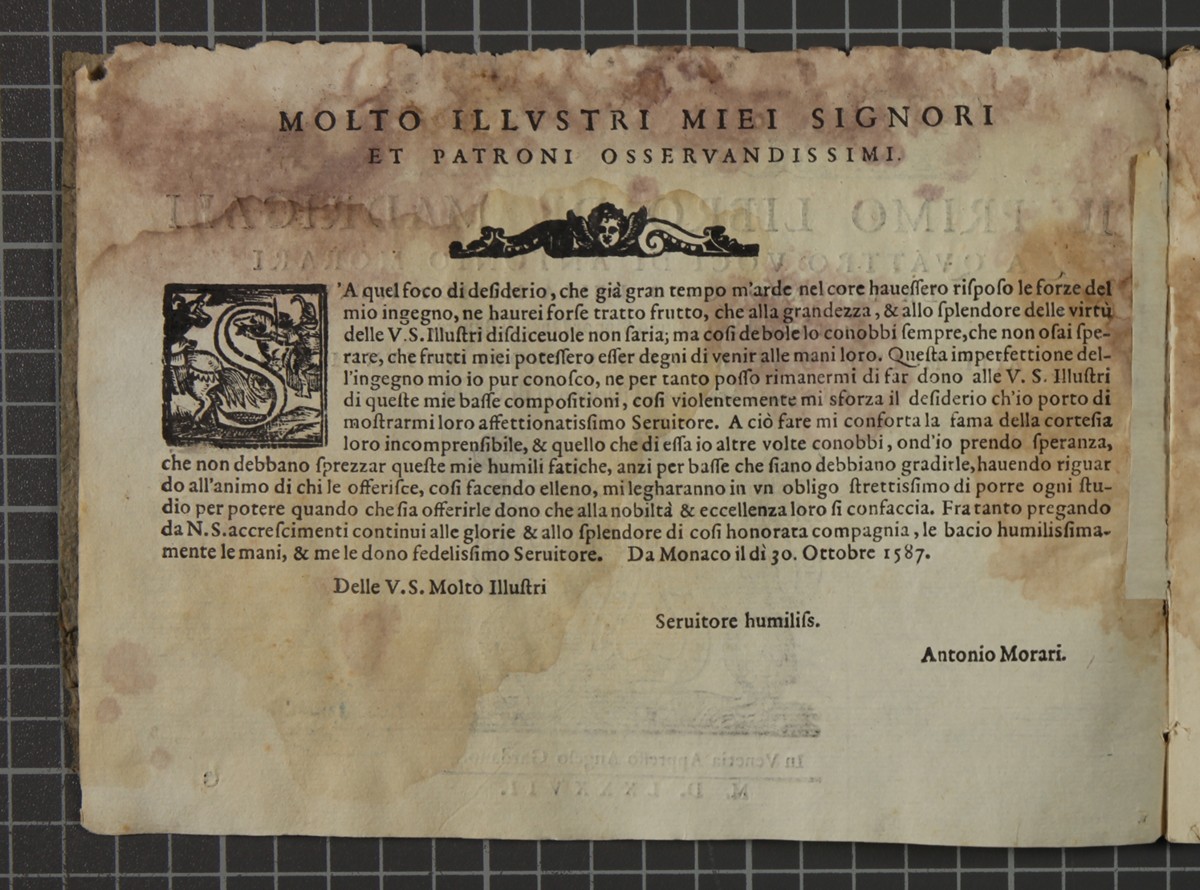 MOLTO ILLVSTRI MIEI SIGNORI
ET PATRONI OSSERVANDISSIMI.
S'A quel foco di desiderio, che già gran tempo m'arde nel core hauessero risposo le forze del
mio ingegno, ne haurei forse tratto frutto, che alla grandezza, & allo splendore delle virtù
delle V. S. Illustri disdiceuole non saria; ma cosi debole lo conobbi sempre, che non osai spe-
rare, che frutti miei potessero esser degni di venir alle mani loro. Questa imperfettione del-
l'ingegno mio io pur conosco, ne per tanto posso rimanermi di far dono alle V. S. Illustri
di queste mie basse compositioni, cosi violentemente mi sforza il desiderio ch'io porto di
mostrarmi loro affettionatissimo Seruitore. A ciò fare mi conforta la fama della cortesia
loro incomprensibile, & quello che di essa io altre volte conobbi, ond'io prendo speranza,
che non debbano sprezzar queste mie humili fatiche, anzi per basse che siano debbiano gradirle, hauendo riguar
do all'animo di chi le offerisce, cosi facendo elleno, mi legharanno in vn obligo strettissimo di porre ogni stu-
dio per potere quando che sia offerirle dono che alla nobiltà & eccellenza loro si confaccia. Fra tanto pregando
da N. S. accrescimenti continui alle glorie & allo splendore di cosi honorata compagnia, le bacio humilissima-
mente le mani, & me le dono fedelissimo Seruitore. Da Monaco il dì 30. Ottobre 1587.
Delle V. S. Molto Illustri
Seruitore humiliss.
Antonio Morari.
IL PRIMO LIBRO DE MADRIGALI
A QVATTRO VOCI DI ANTONIO MORARI
In Venetia Appresso Angelo Gardano
M. D. LXXXVII.